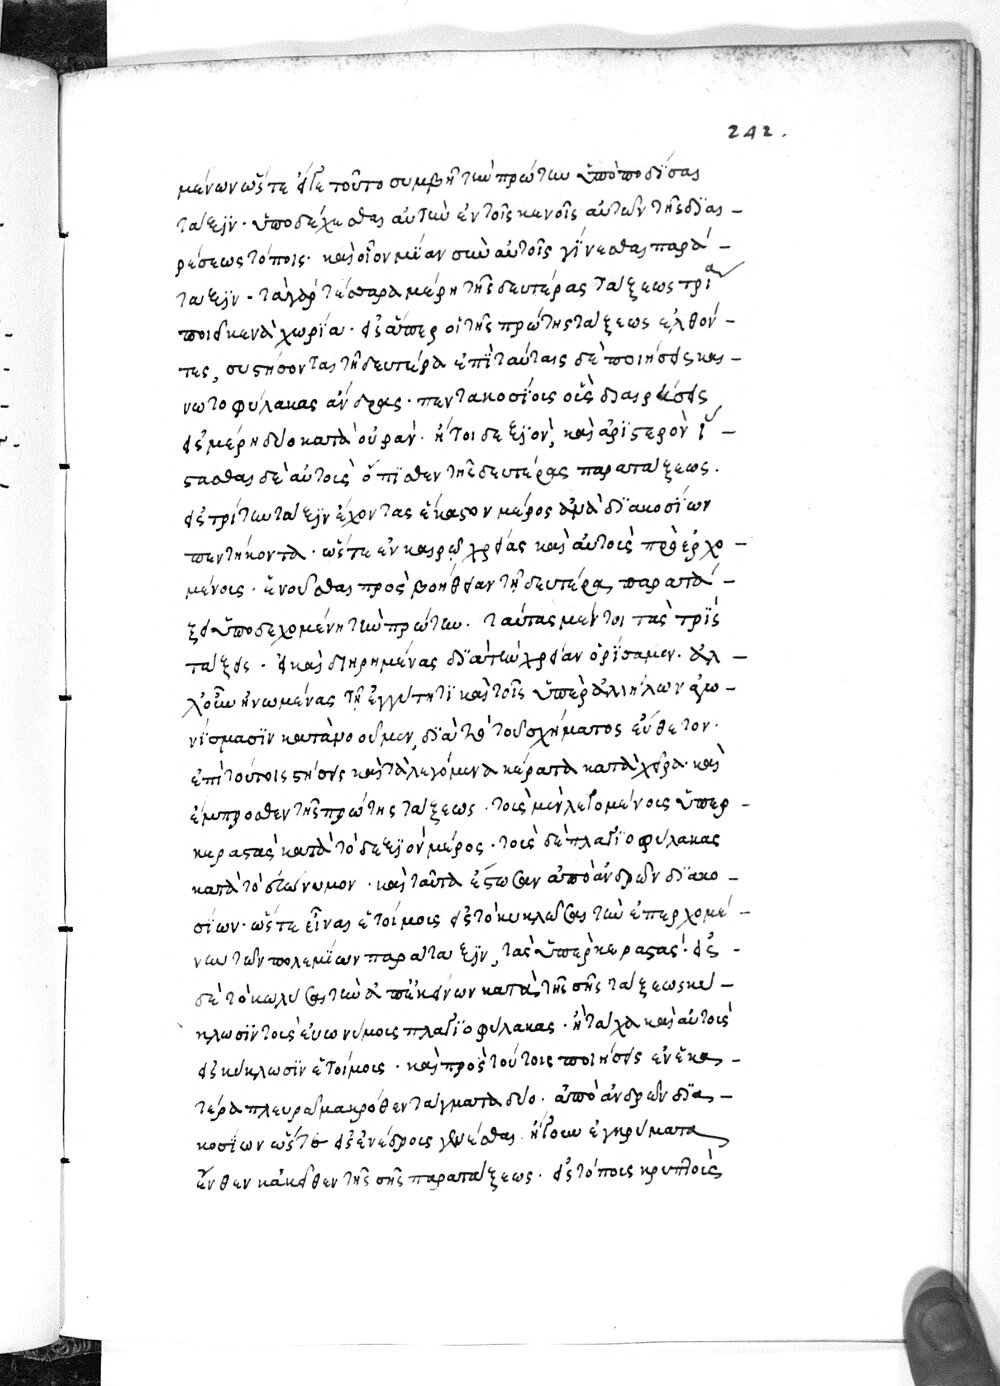 242.
μένων ὥστε εἰ τοῦτο συμβῇ τὴν πρώτην ὑποποδίσας
τάξιν· ὑποδέχεσθαι αὐτὴν ἐν τοῖς κενοῖς αὐτῶν τῆς διαι–
ρέσεως τόποις· καὶ οἷον μίαν σὺν αὐτοῖς γίνεσθαι παρά–
ταξιν· τὰ γὰρ τέσσαρα μέρη τῆς δευτέρας τάξεως τρία
ποιεῖ κενὰ χωρία· εἰς ἅπερ οἱ τῆς πρώτης τάξεως ἐλθόν–
τες, συστήσονται τῇ δευτέρα ἐπὶ ταύταις δὲ ποιήσεις και–
νωτοφύλακας ἄνδρας· πεντακοσίοις οἷς διαιρήσεις
εἰς μέρη δύο κατὰ οὐράν· ἤτοι δεξιὸν, καὶ ἀρίστερὸν ἵ–
στασθαι δὲ αὐτοὶς ὄπισθεν τῆς δευτέρας παρατάξεως·
εἰς τρίτην τάξιν ἔχοντας ἕκαστον μέρος ἀνὰ διακοσίων
πεντήκοντα· ὥστε ἐν καιρῷ χρείας καὶ αὐτοὶς προερχο–
μένοις· ἑνοῦσθαι πρὸς βοήθειαν τῇ δευτέρα, παρατά–
ξει ὑποδεχομένη τὴν πρώτην· ταύτας μέν τοι τὰς τρῒς
τάξεις· εἰ καὶ διῃρημένας διὰ τὴν χρείαν ὁρίσαμεν· ἀλ–
λ' οὖν ἡνωμένας τῇ ἐγγύτητι καὶ τοῖς ὑπὲρ ἀλλήλων ἀγω–
νίσμασιν κατανοοῦμεν, διὰ τὸ τοῦ σχήματος εὔθετον·
ἐπὶ τούτοις στήσεις καὶ τὰ λεγόμενα κέρατα κατὰ χώρα· καὶ
ἔμπροσθεν τῆς πρώτης τάξεως· τοὶς μὲν λεγομένοις ὑπερ–
κεραστὰς κατὰ τὸ δεξιὸν μέρος· τοὶς δὲ πλαγιοφύλακας
κατὰ τὸ εὐώνυμον· καὶ ταῦτα ἔστωσαν ἀπὸ ἀνδρῶν διακο–
σίων· ὥστε εἶναι ἑτοίμοις εἰς τὸ κυκλῶσαι τὴν ἐπερχομέ–
νην τῶν πολεμίων παράταξιν, τὰς ὑπερκεραστάς· εἰς–
δὲ τὸ κωλῦσαι τὴν ἀπ' ἐκείνων κατὰ τῆς σῆς τάξεως κύ–
κλωσιν τοὶς εὐωνύμοις πλαγιοφύλακας· ἢ τάχα καὶ αὐτοὶς
εἰς κύκλωσιν ἑτοίμοις· καὶ πρὸς τούτοις ποιήσεις ἐν ἑκα–
τέρα πλευρᾷ μακρόθεν τάγματα δύο· ἀπὸ ἀνδρῶν δια–
κοσίων ὥστε εἰς ἐνέδροις γενέσθαι. ἤγουν ἐγκρύμματα
ἔνθεν κἀκεῖθεν τῆς σῆς παρατάξεως· εἰς τόποις κρυπτοὶς